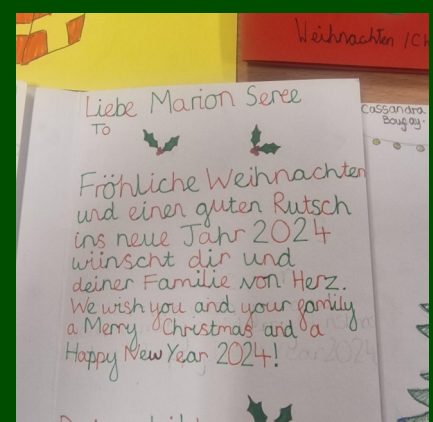 Weihnachten /Ch
Liebe Marion Seree
To
Cassandra
Bougay.
Fröhliche Weihnachten
und einen guten Rutsch
ins neue Jahr 2024
wünscht dir und
deiner Familie von Herz.
We wish you and your family
a Merry Christmas and a
Happy New Year 2024!